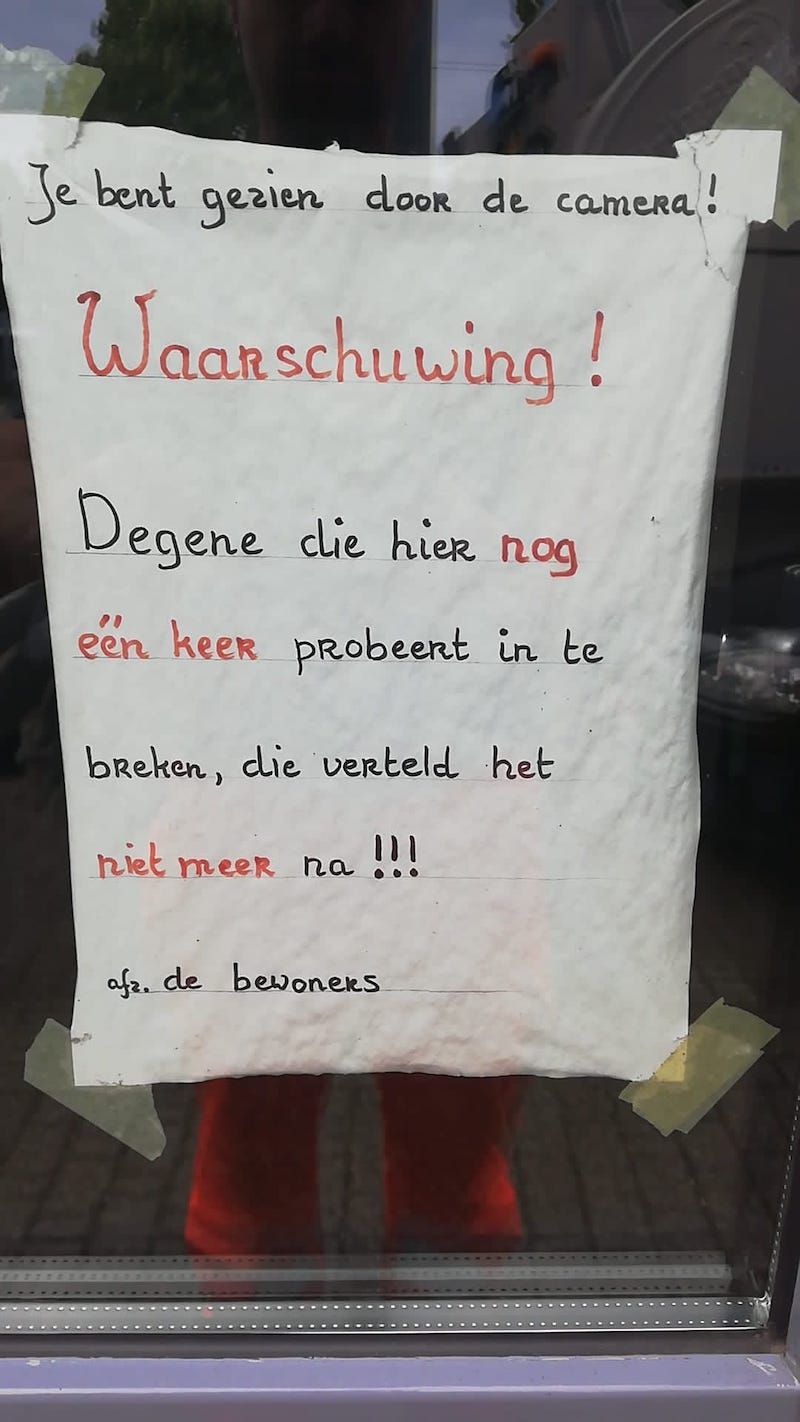 Je bent gezien door de camera!
Waarschuwing!
Degene die hier nog
ëën keer probeert in te
breken, die verteld het
niet meer na!!!
afz. de bewoners